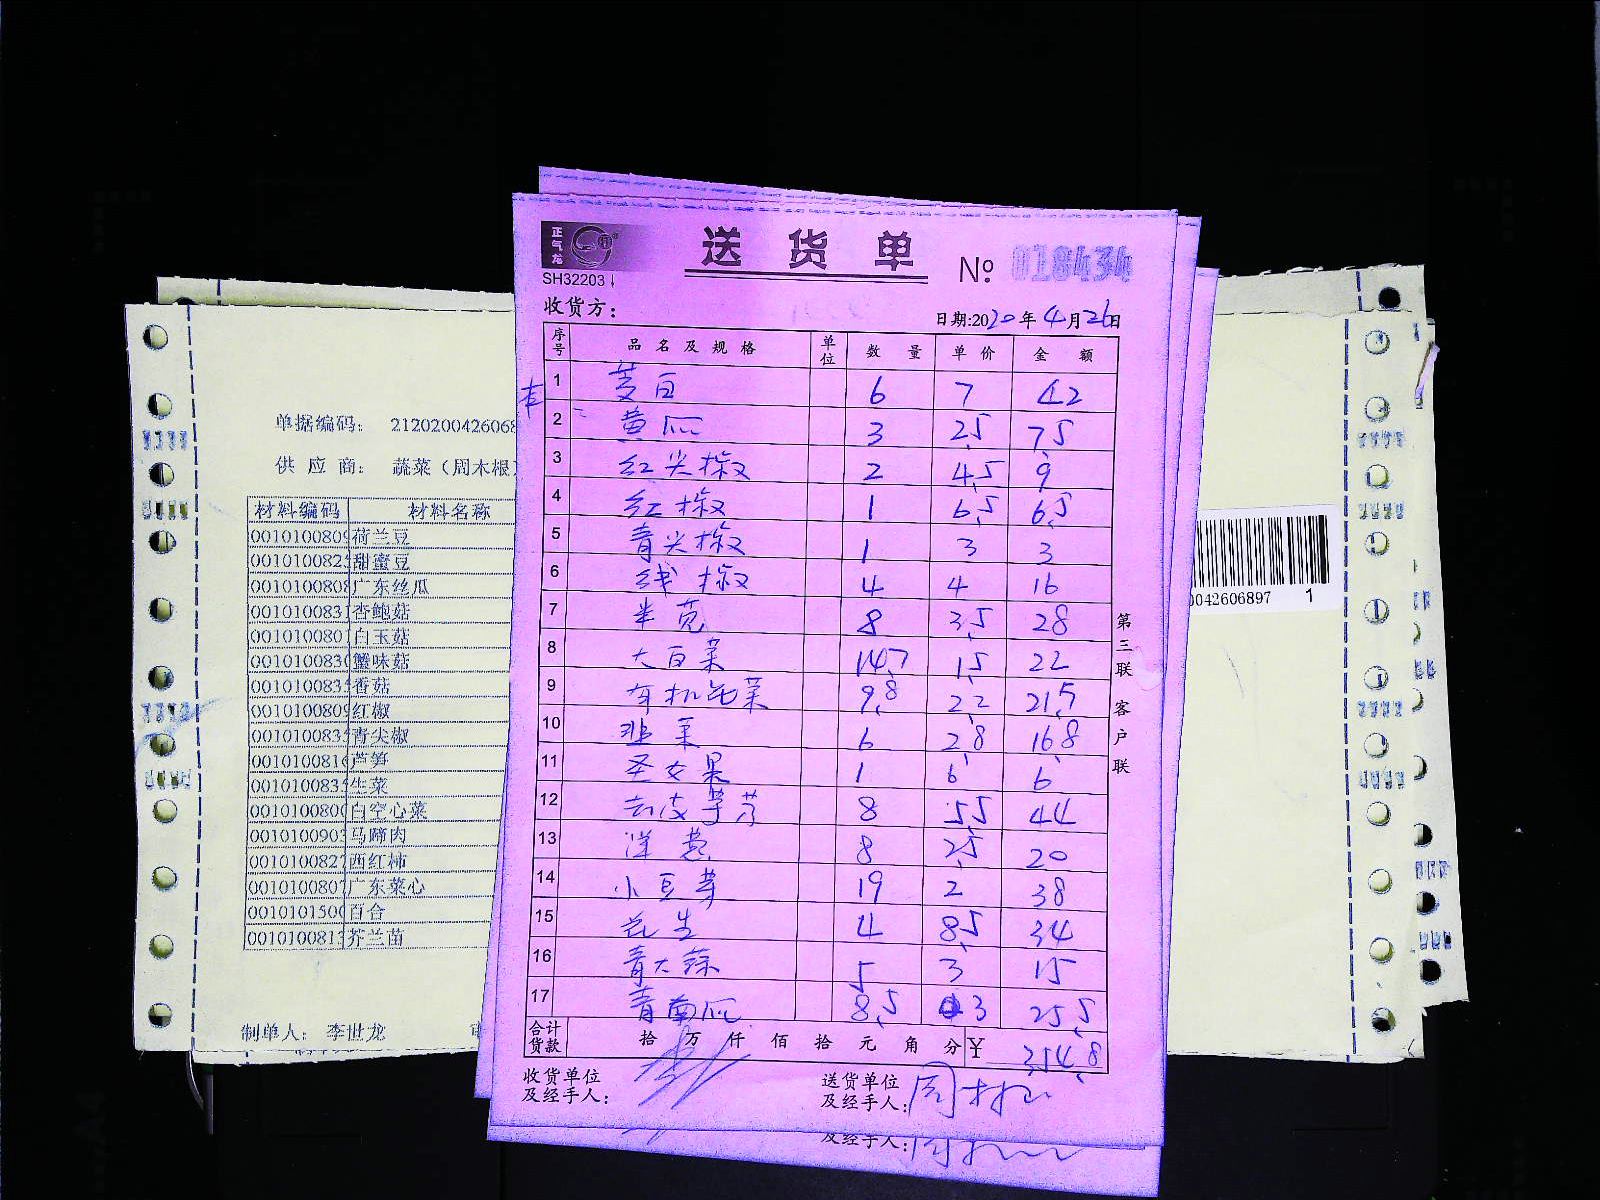 正气龙
SH32203
送货单
№ 018434
收货方：
日期:2020年4月26日
序号 品名及规格 单位 数量 单价 金额
1 茭白 6 7 42
2 黄瓜 3 2.5 7.5
3 红尖椒 2 4.5 9
4 红椒 1 6.5 6.5
5 青尖椒 1 3 3
6 线椒 4 4 16
7 米苋 8 3.5 28
8 大白菜 14.7 1.5 22
9 有机花菜 9.8 2.2 21.5
10 韭菜 6 2.8 16.8
11 圣女果 1 6 6
12 去皮芋艿 8 5.5 44
13 洋葱 8 2.5 20
14 小豆芽 19 2 38
15 花生 4 8.5 34
16 青大蒜 5 3 15
17 青南瓜 8.5 3 25.5
合计货款 拾 万 仟 佰 拾 元 角 分 ¥ 354.8
收货单位及经手人：
送货单位及经手人：周木根
及经手人：
第三联 客户联
单据编码： 2120200426068
供应商： 蔬菜（周木根）
材料编码 材料名称
0010100809 荷兰豆
001010082 甜蜜豆
001010080 广东丝瓜
001010083 杏鲍菇
001010080 白玉菇
001010083 蟹味菇
001010083 香菇
0010100809 红椒
001010083 青尖椒
001010081 芦笋
001010083 生菜
001010080 白空心菜
001010090 马蹄肉
001010082 西红柿
001010080 广东菜心
001010150 百合
001010081 芥兰苗
制单人： 李世龙
0042606897 1